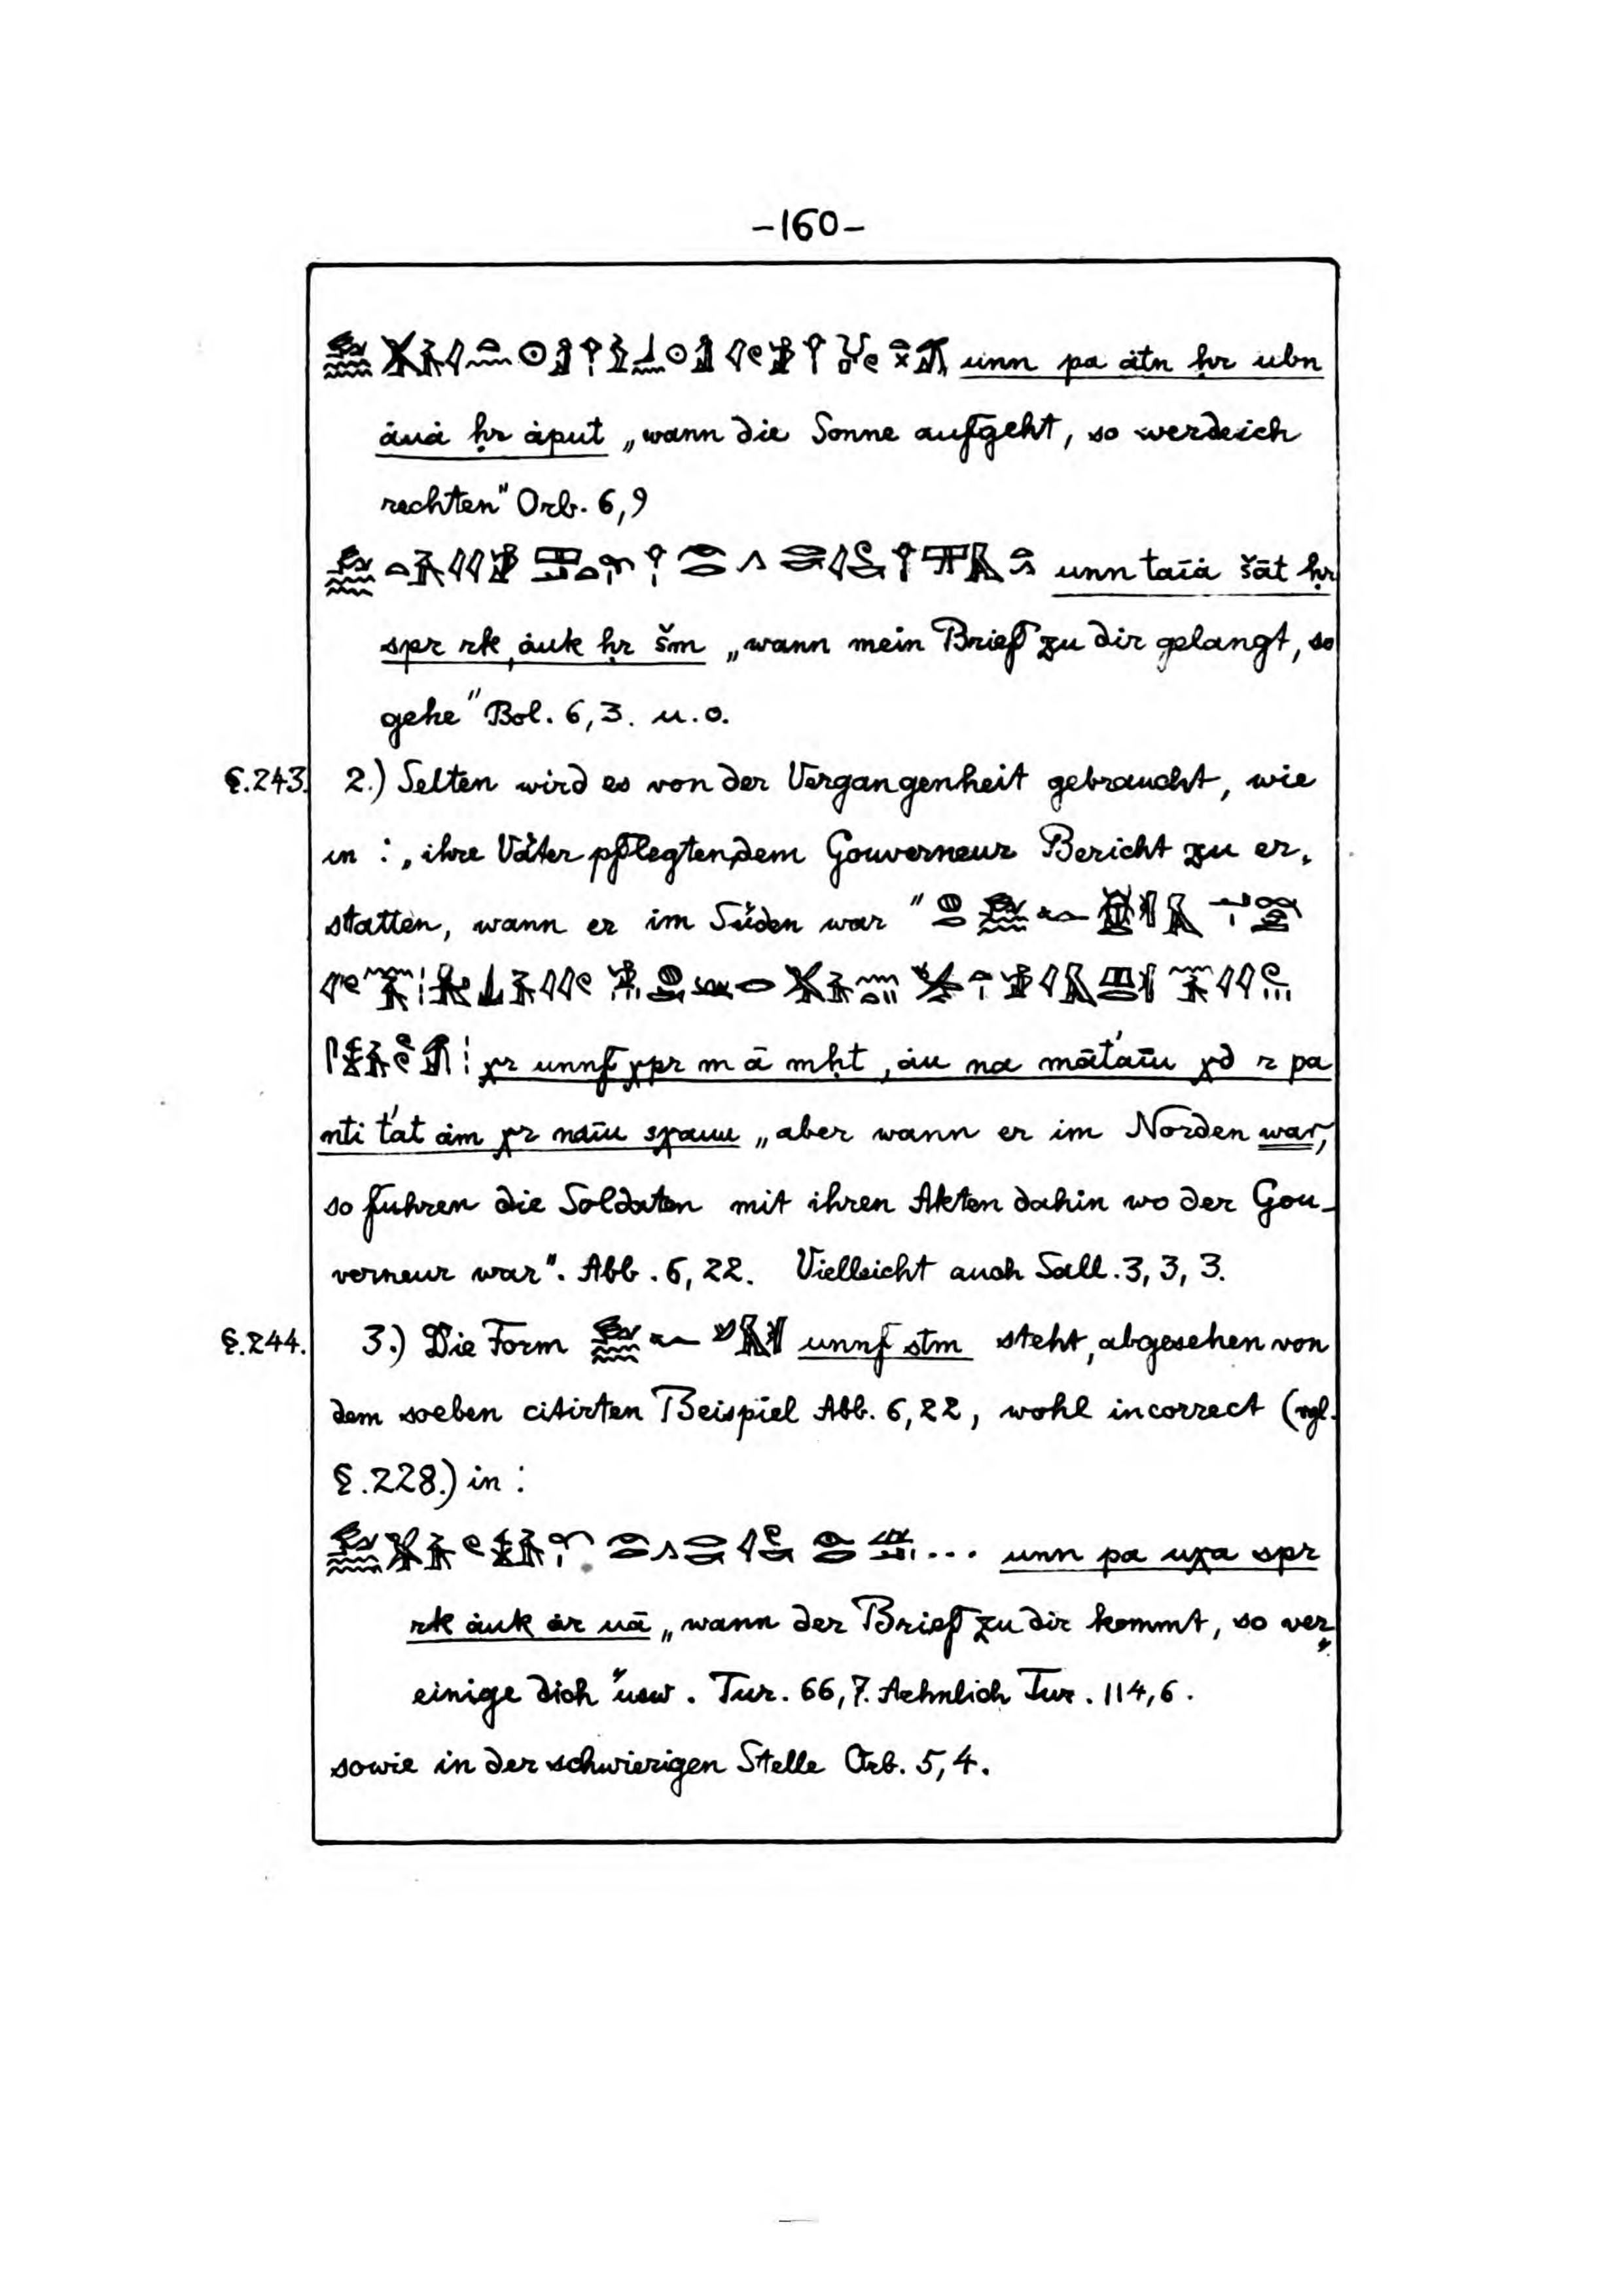 -160-
unn pa àtn ḥr ubn
àuà ḥr àput „wann die Sonne aufgeht, so werde ich
rechten" Orb. 6,9
unn taīà šāt ḥr
spr rk, àuk ḥr šm „wann mein Brief zu dir gelangt, so
gehe" Bol. 6,3. u. o.
§.243. 2.) Selten wird es von der Vergangenheit gebraucht, wie
in: „ihre Väter pflegten, dem Gouverneur Bericht zu er-
statten, wann er im Süden war"
χr unnf χpr m ā mḥt, àu na māt'aīu χd r pa
nti t'at àm χr naīu sχauu „aber wann er im Norden war,
so fuhren die Soldaten mit ihren Akten dahin wo der Gou-
verneur war". Abb. 6,22. Vielleicht auch Sall. 3,3,3.
§.244. 3.) Die Form unnf stm steht, abgesehen von
dem soeben citirten Beispiel Abb. 6,22, wohl incorrect (vgl.
§.228.) in:
... unn pa uχa spr
rk àuk àr uā „wann der Brief zu dir kommt, so ver-
einige dich" usw. Tur. 66,7. Aehnlich Tur. 114,6.
sowie in der schwierigen Stelle Orb. 5,4.